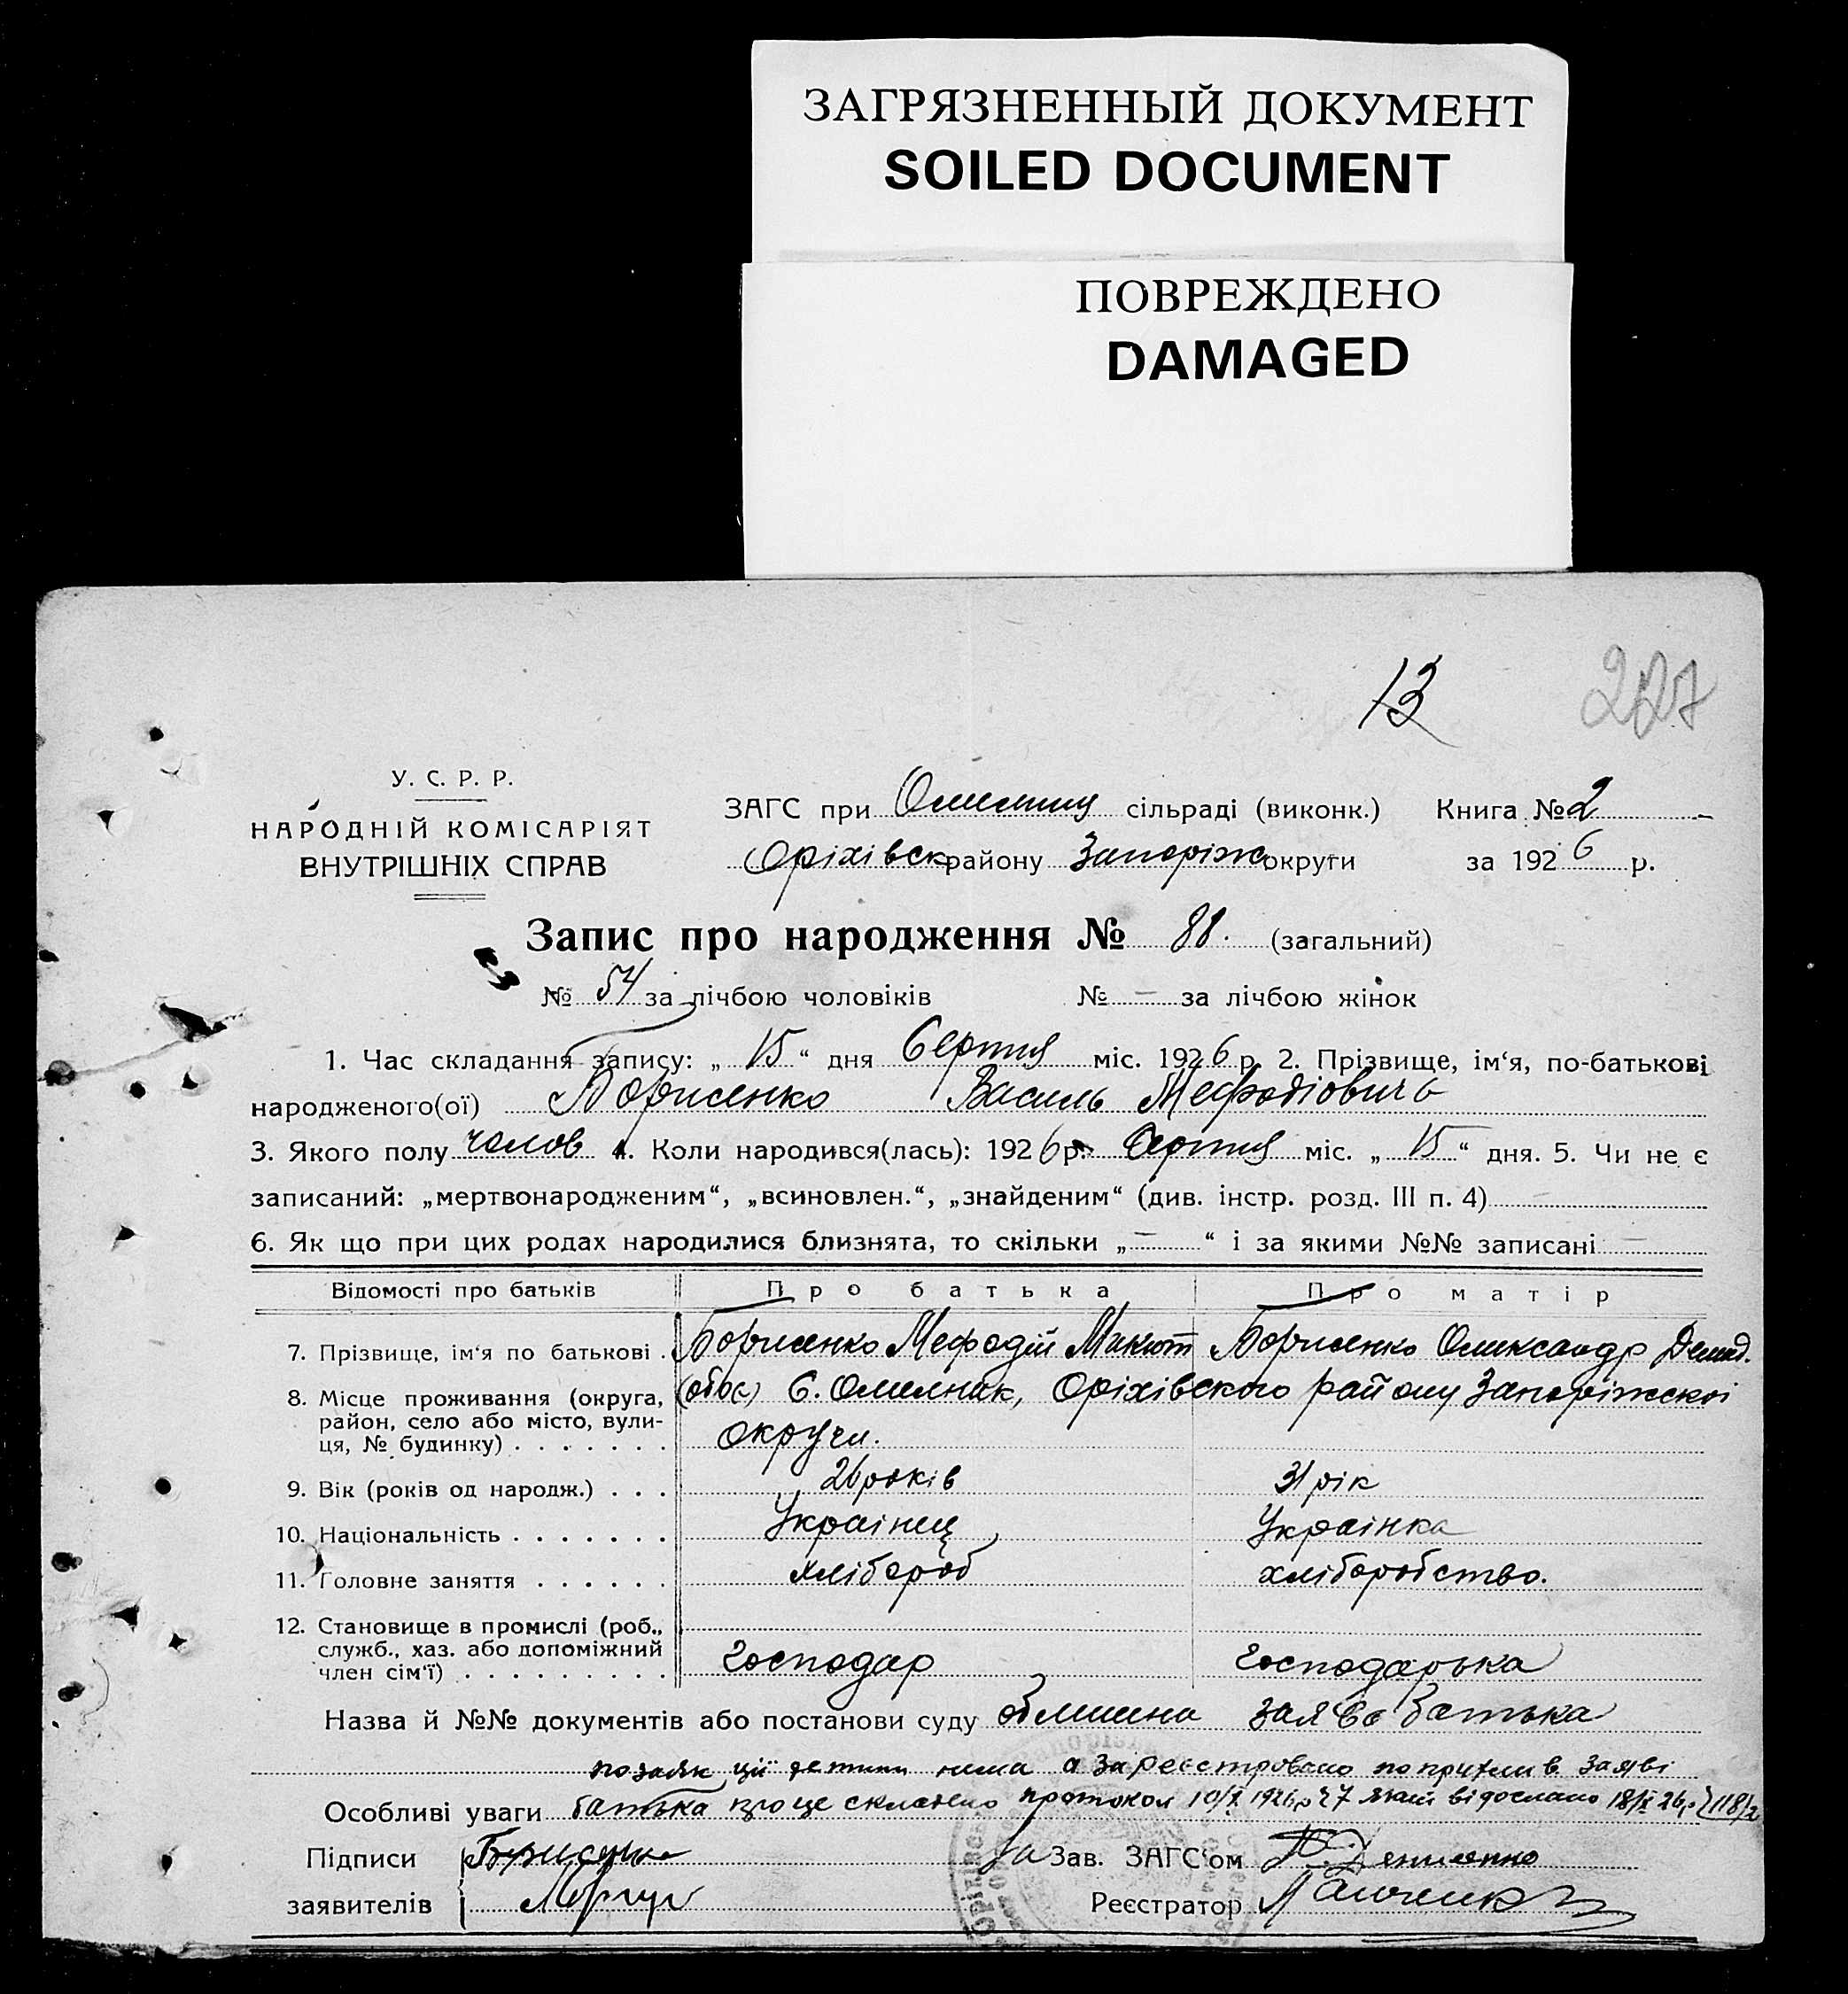 ЗАГРЯЗНЕННЫЙ ДОКУМЕНТ
SOILED DOCUMENT
ПОВРЕЖДЕНО
DAMAGED
13 227
У. С. Р. Р.
НАРОДНІЙ КОМІСАРІЯТ
ВНУТРІШНІХ СПРАВ
ЗАГС при сільраді (виконк.) Книга № 2
Оріхівск району Запоріж округи за 1926 р.
Запис про народження № 88. (загальний)
№ 54 за лічбою чоловіків № — за лічбою жінок
1. Час складання запису: „ 15 “ дня Серпня міс. 1926 р. 2. Прізвище, ім‘я, по-батькові
народженого(ої) Борисенко Василь Мефодіович
3. Якого полу чолов 4. Коли народився(лась): 1926 р. Серпня міс. „ 15 “ дня. 5. Чи не є
записаний: „мертвонародженим“, „всиновлен.“, „знайденим“ (див. інстр. розд. III п. 4) —
6. Як що при цих родах народилися близнята, то скільки „ — “ і за якими №№ записані —
Відомості про батьків Про батька Про матір
7. Прізвище, ім‘я по батькові . Борисенко Мефодій Микит Борисенко Олександр Демид.
8. Місце проживання (округа, район, село або місто, вулиця, № будинку) . . . . . . . (обоє) С. Омелник, Оріхівского району Запоріжскоі
округи.
9. Вік (років од народж.) . . . 26 років 31 рік
10. Національність . . . . . . . Украінец Украінка
11. Головне заняття . . . . . . хлібороб хліборобство.
12. Становище в промислі (роб., служб., хаз. або допоміжний член сім‘ї) . . . . . . . . . Господар Господарька
Назва й №№ документів або постанови суду заява Батька
ції детини нема а зареєстровано заяві
Особливі уваги батька про це складено протокол відослано
Підписи Борисенко за Зав. ЗАГС‘ом
заявителів Реєстратор